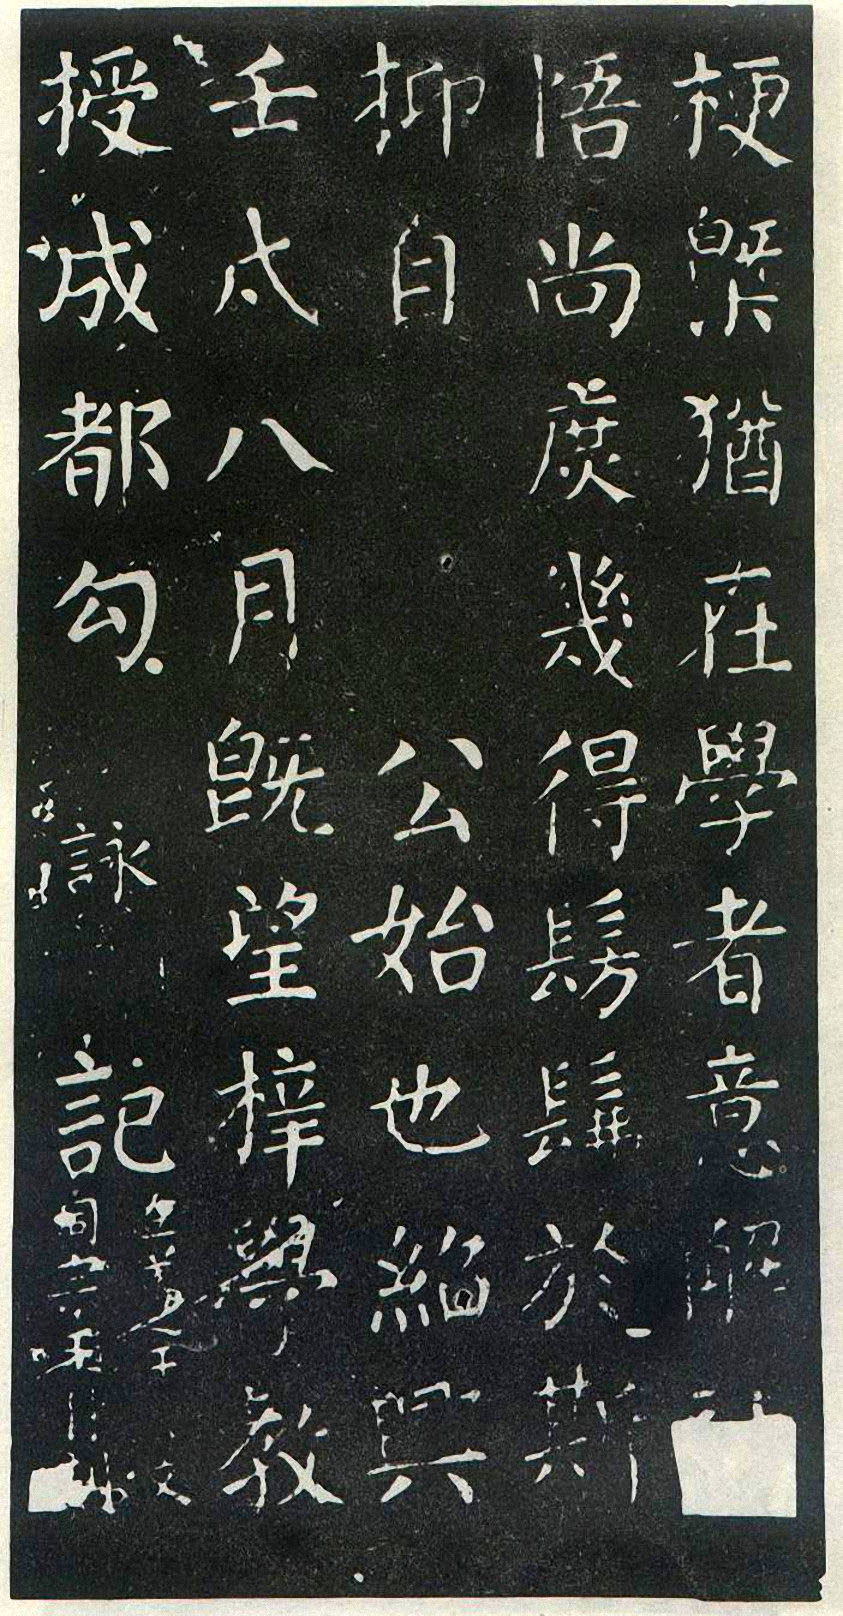 梗槩猶在學者意解
悟尚庶幾得髣髴於斯
抑自 公始也紹興
壬戌八月旣望梓學教
授成都勾 詠 記